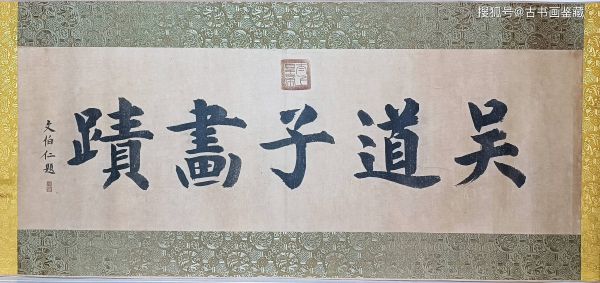 搜狐号@古书画鉴藏
吳道子畫蹟
文伯仁題